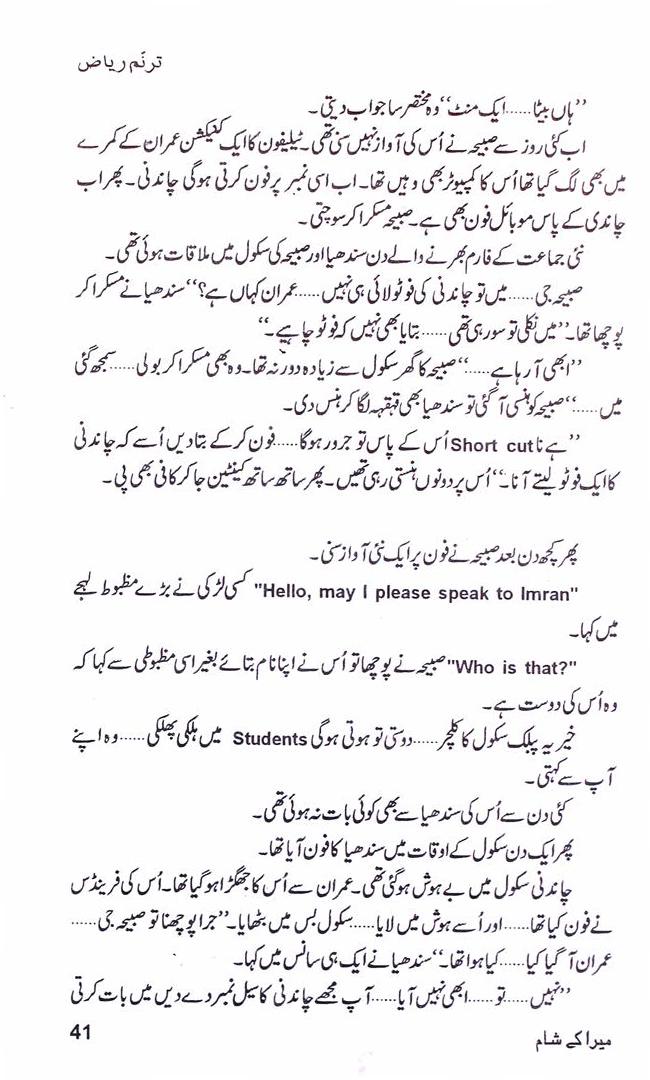 ترنّم ریاض
’’ہاں بیٹا......ایک منٹ‘‘وہ مختصر سا جواب دیتی۔
اب کئی روز سے صبیحہ نے اُس کی آواز نہیں سنی تھی۔ٹیلیفون کا ایک کنیکشن عمران کے کمرے
میں بھی لگ گیا تھا اُس کا کمپیوٹر بھی وہیں تھا۔اب اسی نمبر پر فون کرتی ہوگی چاندنی۔پھر اب
چاندی کے پاس موبائل فون بھی ہے۔صبیحہ مسکرا کر سوچتی۔
نئی جماعت کے فارم بھرنے والے دن سندھیا اور صبیحہ کی سکول میں ملاقات ہوئی تھی۔
صبیحہ جی......میں تو چاندنی کی فوٹو لائی ہی نہیں......عمران کہاں ہے؟‘‘سندھیا نے مسکرا کر
پوچھا تھا۔’’میں نکلی تو سو رہی تھی......بتایا بھی نہیں کہ فوٹو چاہیے۔‘‘
’’ابھی آ رہا ہے.....‘‘صبیحہ کا گھر سکول سے زیادہ دور نہ تھا۔وہ بھی مسکرا کر بولی......سمجھ گئی
میں.....‘‘صبیحہ کو ہنسی آگئی تو سندھیا بھی قہقہہ لگا کر ہنس دی۔
’’ہے نا Short cut اُس کے پاس تو جرور ہوگا......فون کر کے بتا دیں اُسے کہ چاندنی
کا ایک فوٹو لیتے آنا۔‘‘اُس پر دونوں ہنستی رہی تھیں۔پھر ساتھ ساتھ کینٹین جا کر کافی بھی پی۔
پھر کچھ دن بعد صبیحہ نے فون پر ایک نئی آواز سنی۔
"Hello, may I please speak to Imran" کسی لڑکی نے بڑے مظبوط لہجے
میں کہا۔
"Who is that?" صبیحہ نے پوچھا تو اُس نے اپنا نام بتائے بغیر اسی مظبوطی سے کہا کہ
وہ اُس کی دوست ہے۔
خیر یہ پبلک سکول کا کلچر......دوستی تو ہوتی ہوگی Students میں ہلکی پھلکی......وہ اپنے
آپ سے کہتی۔
کئی دن سے اُس کی سندھیا سے بھی کوئی بات نہ ہوئی تھی۔
پھر ایک دن سکول کے اوقات میں سندھیا کا فون آیا تھا۔
چاندنی سکول میں بے ہوش ہوگئی تھی۔عمران سے اُس کا جھگڑا ہو گیا تھا۔اُس کی فرینڈس
نے فون کیا تھا......اور اُسے ہوش میں لایا......سکول بس میں بٹھایا۔’’جرا پوچھنا تو صبیحہ جی......
عمران آ گیا کیا......کیا ہوا تھا۔‘‘سندھیا نے ایک ہی سانس میں کہا۔
’’نہیں.....تو......ابھی نہیں آیا......آپ مجھے چاندنی کا سیل نمبر دے دیں میں بات کرتی
میرا کے شام
41